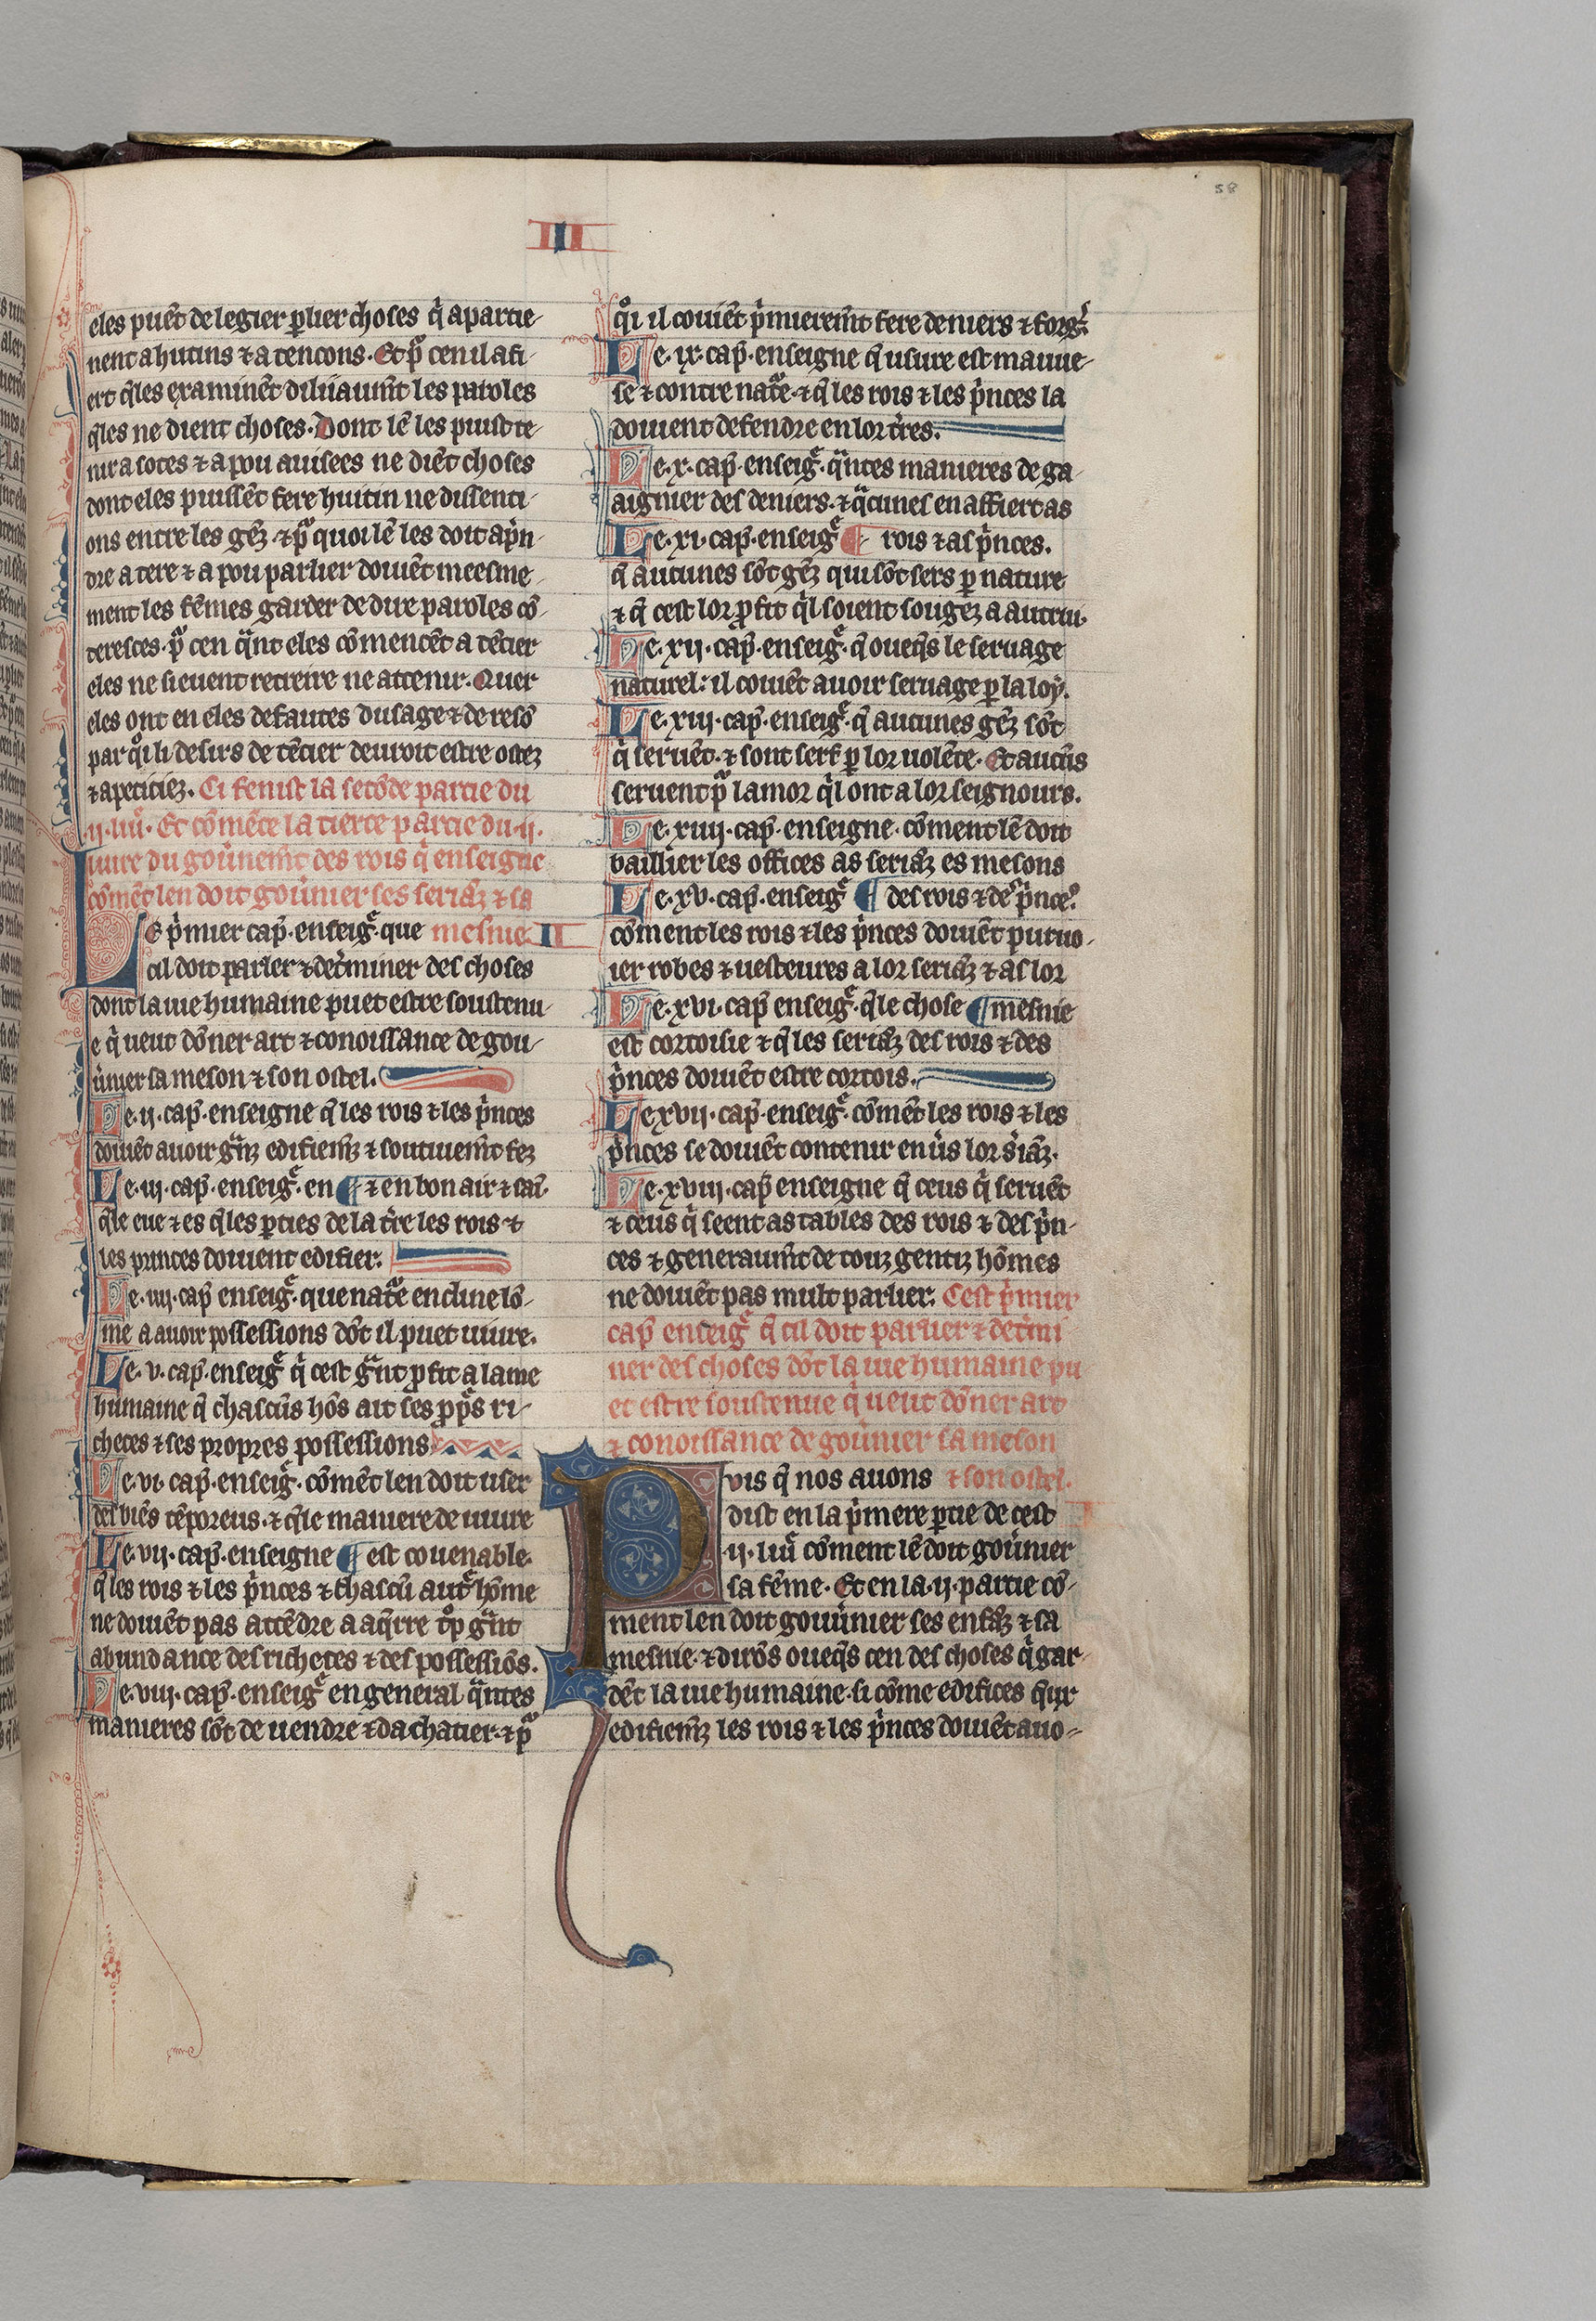 58
III
eles puēt de legier ꝑlier choses q̇ apartie-
nent a hutins ⁊ a tencons. Et pͣ cen il afi-
ert q̄les examinēt diliiaum̄t les paroles
q̄les ne dient choses. Dont lē les puist te-
nir a sotes ⁊ a pou auisees ne diēt choses
dont eles puissēt fere hutin ne dissenti-
ons entre les gēz ⁊ pͣ quoi lē les doit aṗn-
dre a tere ⁊ a pou parlier doiuēt meesme-
ment les fēmes garder de dire paroles cō-
teresces. pͣ cen qͣnt eles cōmencēt a tēcier
eles ne sieuent retreire ne attenir. Quer
eles ont en eles defautes dusage ⁊ de resō
par qͦi li desirs de tēcier deuroit estre ostez
⁊ apeticiez. Ci fenist la secōde partie du
.ij. liū. Et cōmēce la tierce partie du .ij.
liure du gou̇nem̄t des rois q̇ enseigne
cōmēt len doit gou̇nier ses seriāz ⁊ sa
LE ṗmier cap̄. enseiḡ. que mesnie. II
cil doit parler ⁊ deṫminer des choses
dont la uie humaine puet estre soustenu-
e q̇ ueut dōner art ⁊ conoissance de gou-
u̇nier sa meson ⁊ son ostel.
Le .ij. cap̄. enseigne q̄ les rois ⁊ les ṗnces
doiuēt auoir gͣnz edifiem̄z ⁊ soutiuem̄t fez
Le .iij. cap̄. enseiḡ. en ¶ ⁊ en bon air ⁊ sai.
q̄le eue ⁊ es q̄les ꝑties de la ṫre les rois ⁊
les princes doiuent edifier.
Le .iiij. cap̄ enseiḡ. que natͣe encline lō-
me a auoir possessions dōt il puet uiure.
Le .v. cap̄. enseiḡ q̇ cest gͣnt ꝓfit a la uie
humaine q̄ chascūs hōs ait ses ꝓp̄s ri-
checes ⁊ ses propres possessions.
Le .vi. cap̄. enseiḡ. cōmēt len doit user
des biēs tēporeus. ⁊ q̄le maniere de uiure
Le .vij. cap̄. enseigne ¶ est couenable.
q̄ les rois ⁊ les ṗnces ⁊ chascū autͤ hōme
ne doiuēt pas attēdre a aq̄rre tͦp gͣnt
abundance des richeces ⁊ des possessiōs.
Le .viij. cap̄. enseiḡ en general qͣntes
manieres sōt de uendre ⁊ dachatier. ⁊ pͣ
qͦi il couiēt ṗmierem̄t fere deniers ⁊ forḡ.
Le .ix. cap̄. enseigne q̄ usure est mauue-
se ⁊ contre natͣe. ⁊ q̄ les rois ⁊ les ṗnces la
doiuent defendre en lor t̄res.
Le .x. cap̄. enseiḡ. qͣntes manieres de ga-
aignier des deniers. ⁊ qͣcunes en affiert as
Le .xi. cap̄. enseiḡ ¶ rois ⁊ as ṗnces.
q̄ aucunes sōt gēz qui sōt sers ꝑ nature
⁊ q̄ cest lor ꝓfit q̇l soient sougez a autrui.
Le .xij. cap̄. enseiḡ. q̄ oueq̄s le seruage
naturel: il couiēt auoir seruage ꝑ la loy.
Le .xiij. cap̄. enseiḡ. q̄ aucunes gēz sōt
q̇ seruēt. ⁊ sont serf ꝑ lor uolēte. Et aucūs
seruent pͣ lamor q̇l ont a lor seignours.
Le .xiiij. cap̄. enseigne. cōment lē doit
baillier les offices as seriāz es mesons
Le .xv. cap̄. enseiḡ ¶ des rois ⁊ des ṗnces.
cōment les rois ⁊ les ṗnces doiuēt puruo-
ier robes ⁊ uesteures a lor seriāz ⁊ as lor
Le .xvi. cap̄ enseiḡ. q̄le chose ¶ mesnie
est cortoisie ⁊ q̄ les seriāz des rois ⁊ des
ṗnces doiuēt estre cortois.
Le .xvij. cap̄. enseiḡ. cōmēt les rois ⁊ les
ṗnces se doiuēt contenir en u̇s lor ṡiāz.
Le .xviij. cap̄ enseigne q̄ ceus q̇ seruēt
⁊ ceus q̇ seent as tables des rois ⁊ des ṗn-
ces ⁊ generaum̄t de touz gentiz hōmes
ne doiuēt pas mult parlier. Cest ṗmier
cap̄ enseiḡ q̄ cil doit parlier ⁊ deṫmi-
ner des choses dōt la uie humaine pu
et estre soustenue q̇ ueut dōner art
⁊ conoissance de gou̇nier sa meson
Puis q̄ nos auons ⁊ son ostel.
dist en la ṗmere ꝑtie de cest
.ij. liū cōment lē doit gou̇nier
sa fēme. Et en la .ij. partie cō-
ment len doit gouu̇nier ses enfāz ⁊ sa
mesnie. ⁊ dirōs oueq̄s cen des choses q̇ gar-
dēt la uie humaine. si cōme edifices q̄ux
edifiem̄z les rois ⁊ les ṗnces doiuēt auo-